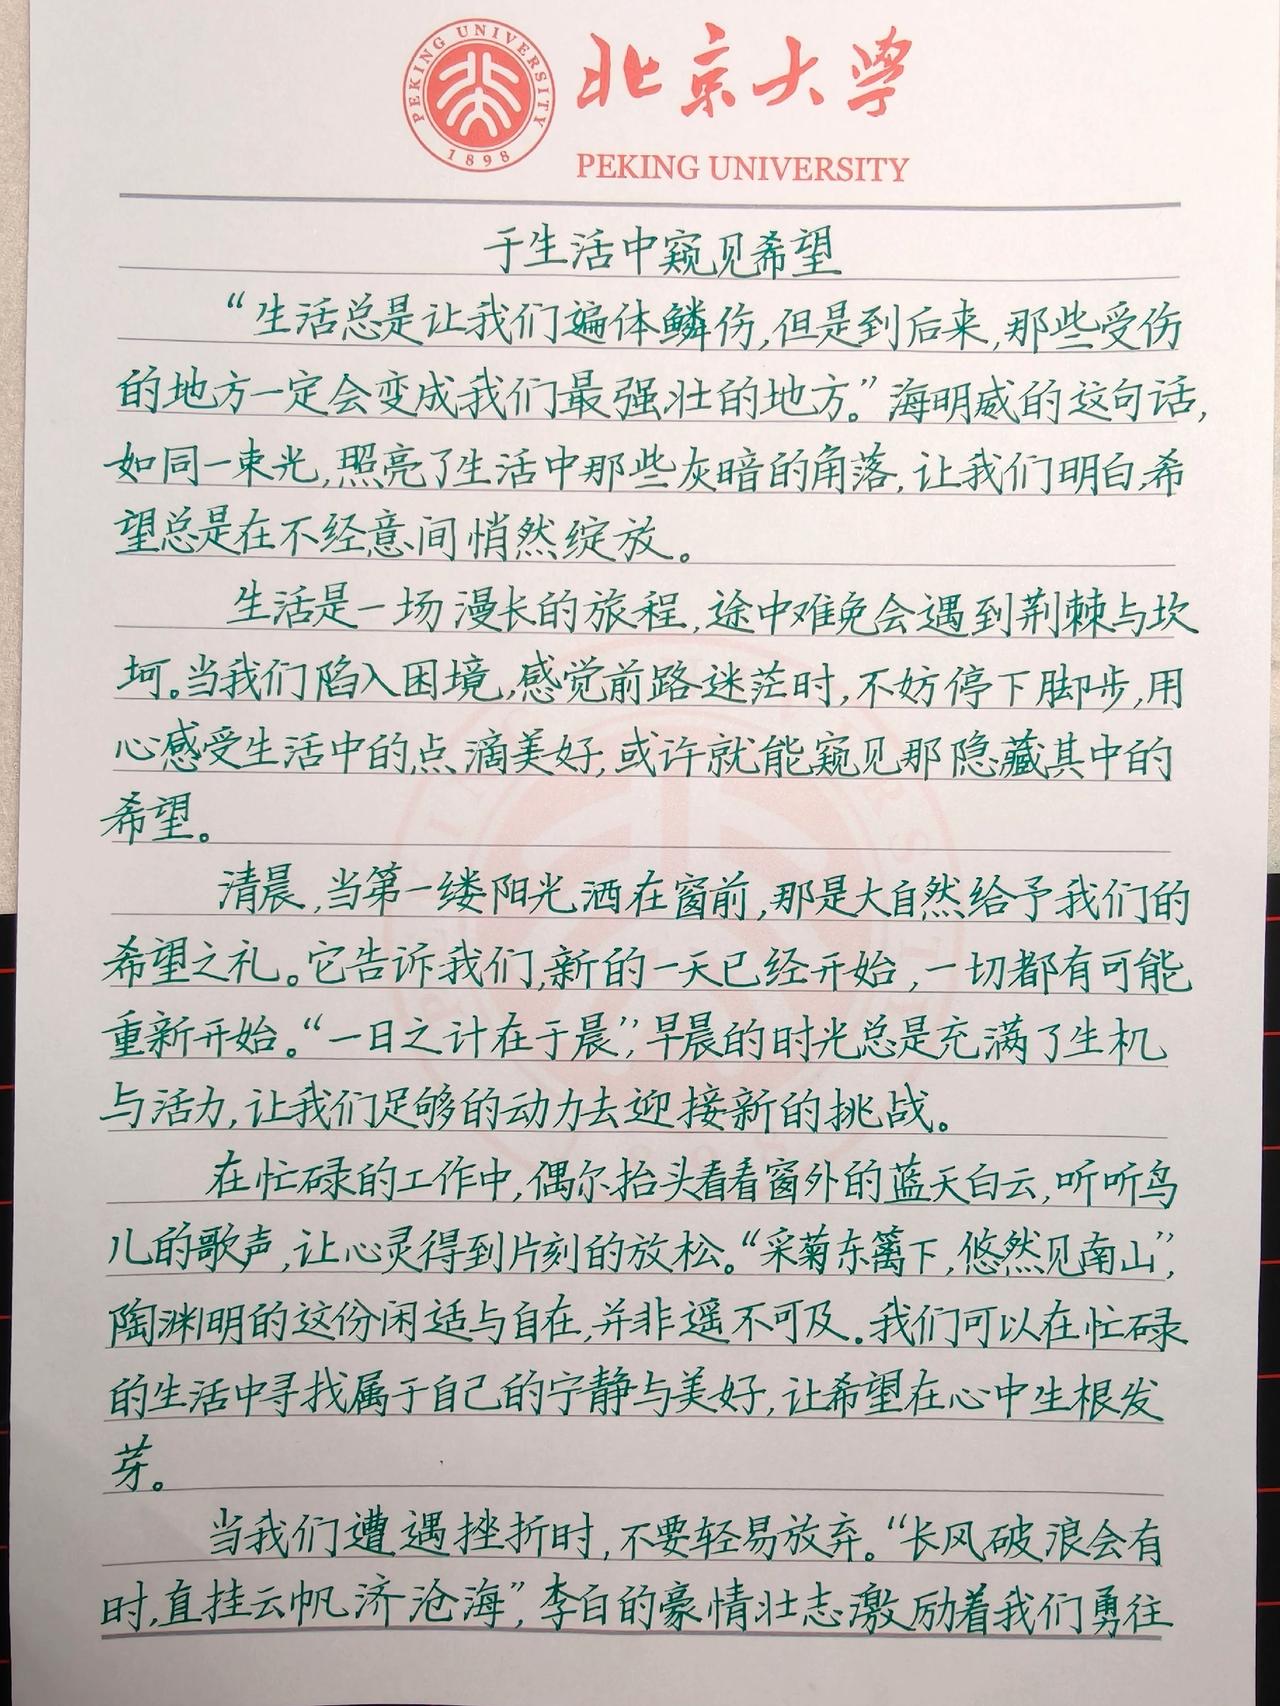 PEKING UNIVERSITY
1898
北京大学
PEKING UNIVERSITY
于生活中窥见希望
“生活总是让我们遍体鳞伤,但是到后来,那些受伤
的地方一定会变成我们最强壮的地方。”海明威的这句话,
如同一束光,照亮了生活中那些灰暗的角落,让我们明白,希
望总是在不经意间悄然绽放。
生活是一场漫长的旅程,途中难免会遇到荆棘与坎
坷。当我们陷入困境,感觉前路迷茫时,不妨停下脚步,用
心感受生活中的点滴美好,或许就能窥见那隐藏其中的
希望。
清晨,当第一缕阳光洒在窗前,那是大自然给予我们的
希望之礼。它告诉我们,新的一天已经开始,一切都有可能
重新开始。“一日之计在于晨”,早晨的时光总是充满了生机
与活力,让我们足够的动力去迎接新的挑战。
在忙碌的工作中,偶尔抬头看看窗外的蓝天白云,听听鸟
儿的歌声,让心灵得到片刻的放松。“采菊东篱下,悠然见南山”,
陶渊明的这份闲适与自在,并非遥不可及。我们可以在忙碌
的生活中寻找属于自己的宁静与美好,让希望在心中生根发
芽。
当我们遭遇挫折时,不要轻易放弃。“长风破浪会有
时,直挂云帆济沧海”,李白的豪情壮志激励着我们勇往